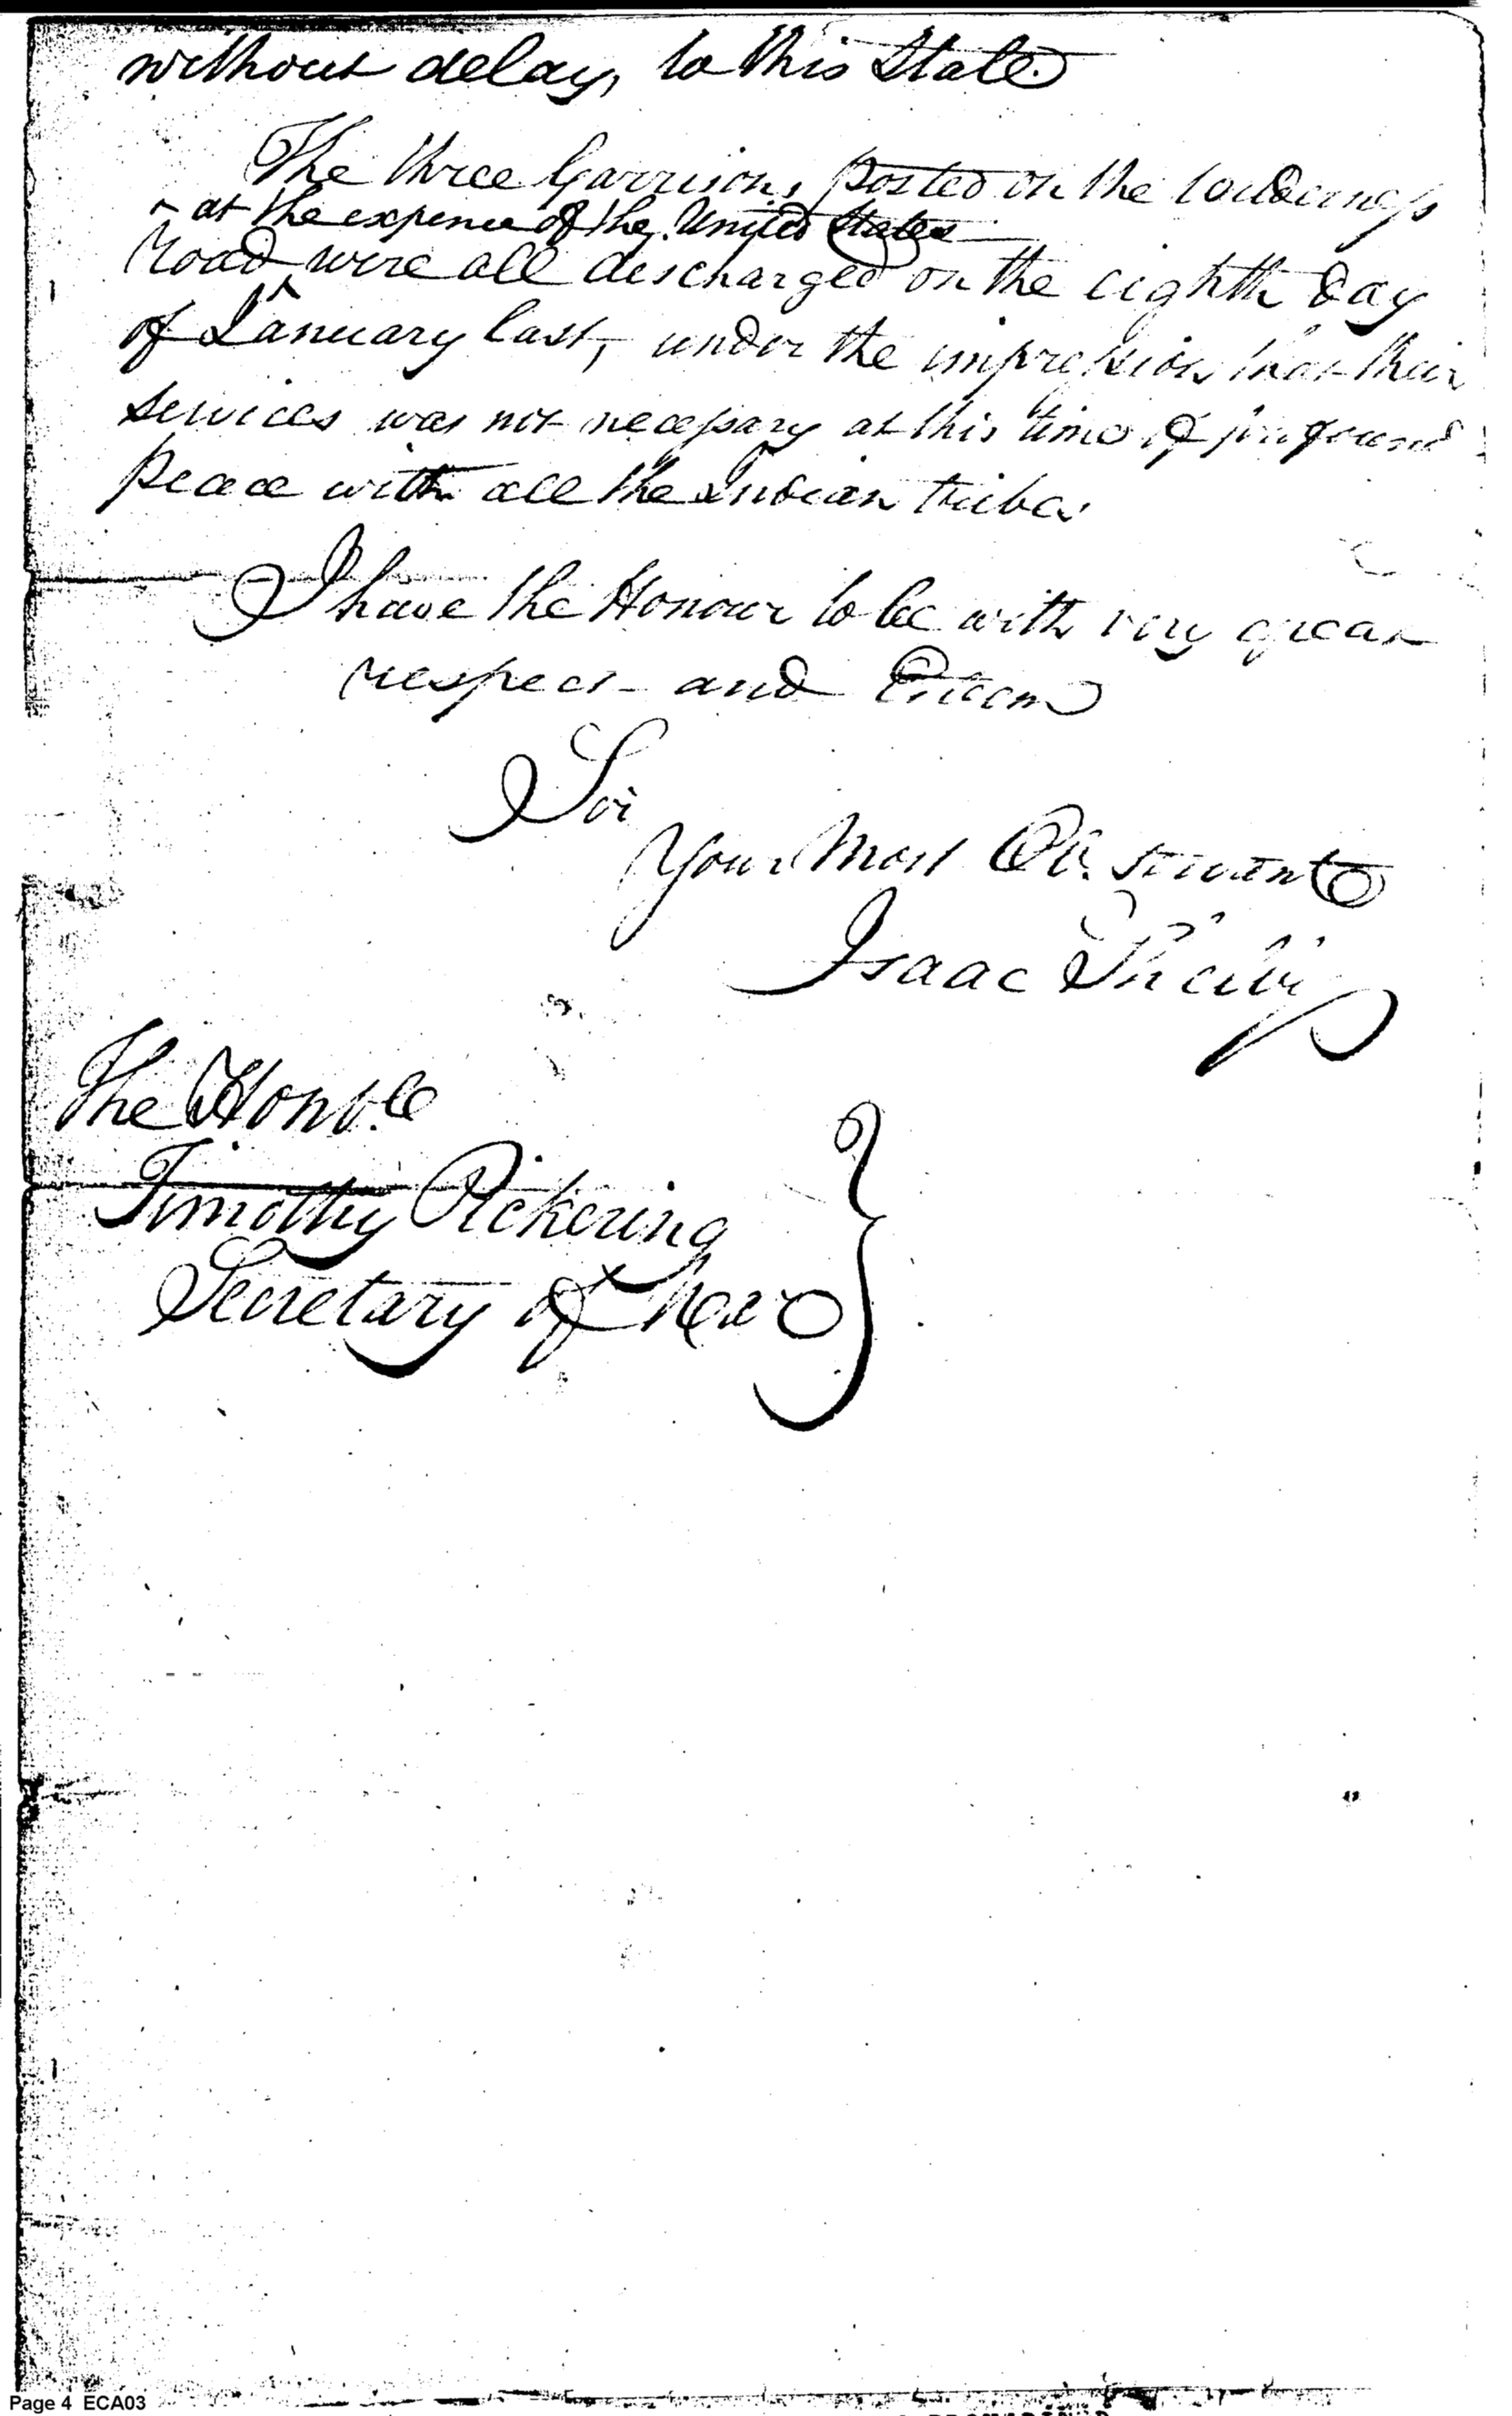 without delay, to this State.
The three Garrisons posted on the wilderness
at the expence of the United States
Road were all discharged on the eighth day
of January last, under the impression that their
services was not necessary at this time of profound
peace with all the Indian tribes
I have the Honour to be with very great
respect and Esteem
Sir
Your Most Ob. servant
Isaac Shelby
The Honble
Timothy Pickering
Secretary of War
Page 4 ECA03